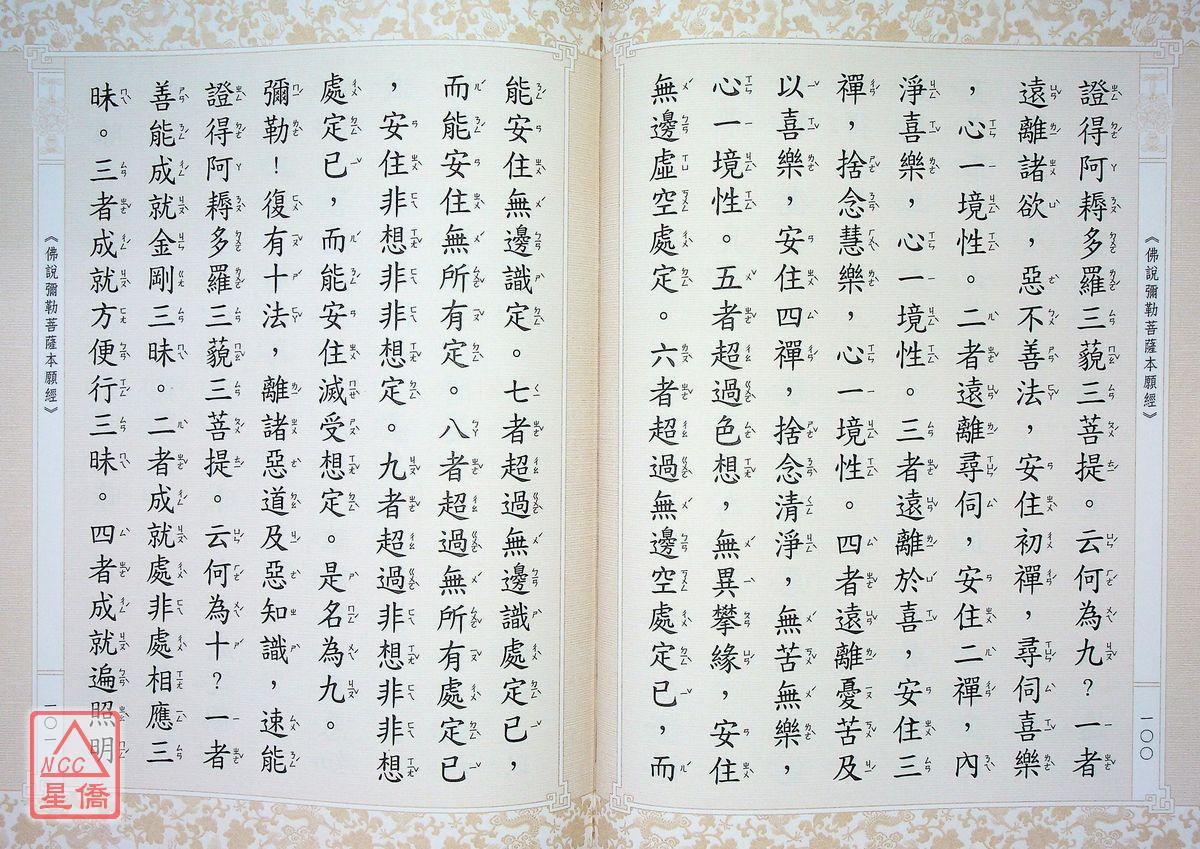 《佛說彌勒菩薩本願經》
一○○
證得阿耨多羅三藐三菩提。云何為九？一者
遠離諸欲，惡不善法，安住初禪，尋伺喜樂
，心一境性。二者遠離尋伺，安住二禪，內
淨喜樂，心一境性。三者遠離於喜，安住三
禪，捨念慧樂，心一境性。四者遠離憂苦及
以喜樂，安住四禪，捨念清淨，無苦無樂，
心一境性。五者超過色想，無異攀緣，安住
無邊虛空處定。六者超過無邊空處定已，而
能安住無邊識定。七者超過無邊識處定已，
而能安住無所有定。八者超過無所有處定已
，安住非想非非想定。九者超過非想非非想
處定已，而能安住滅受想定。是名為九。
彌勒！復有十法，離諸惡道及惡知識，速能
證得阿耨多羅三藐三菩提。云何為十？一者
善能成就金剛三昧。二者成就處非處相應三
昧。三者成就方便行三昧。四者成就遍照明
《佛說彌勒菩薩本願經》
一○一
NCC
星僑